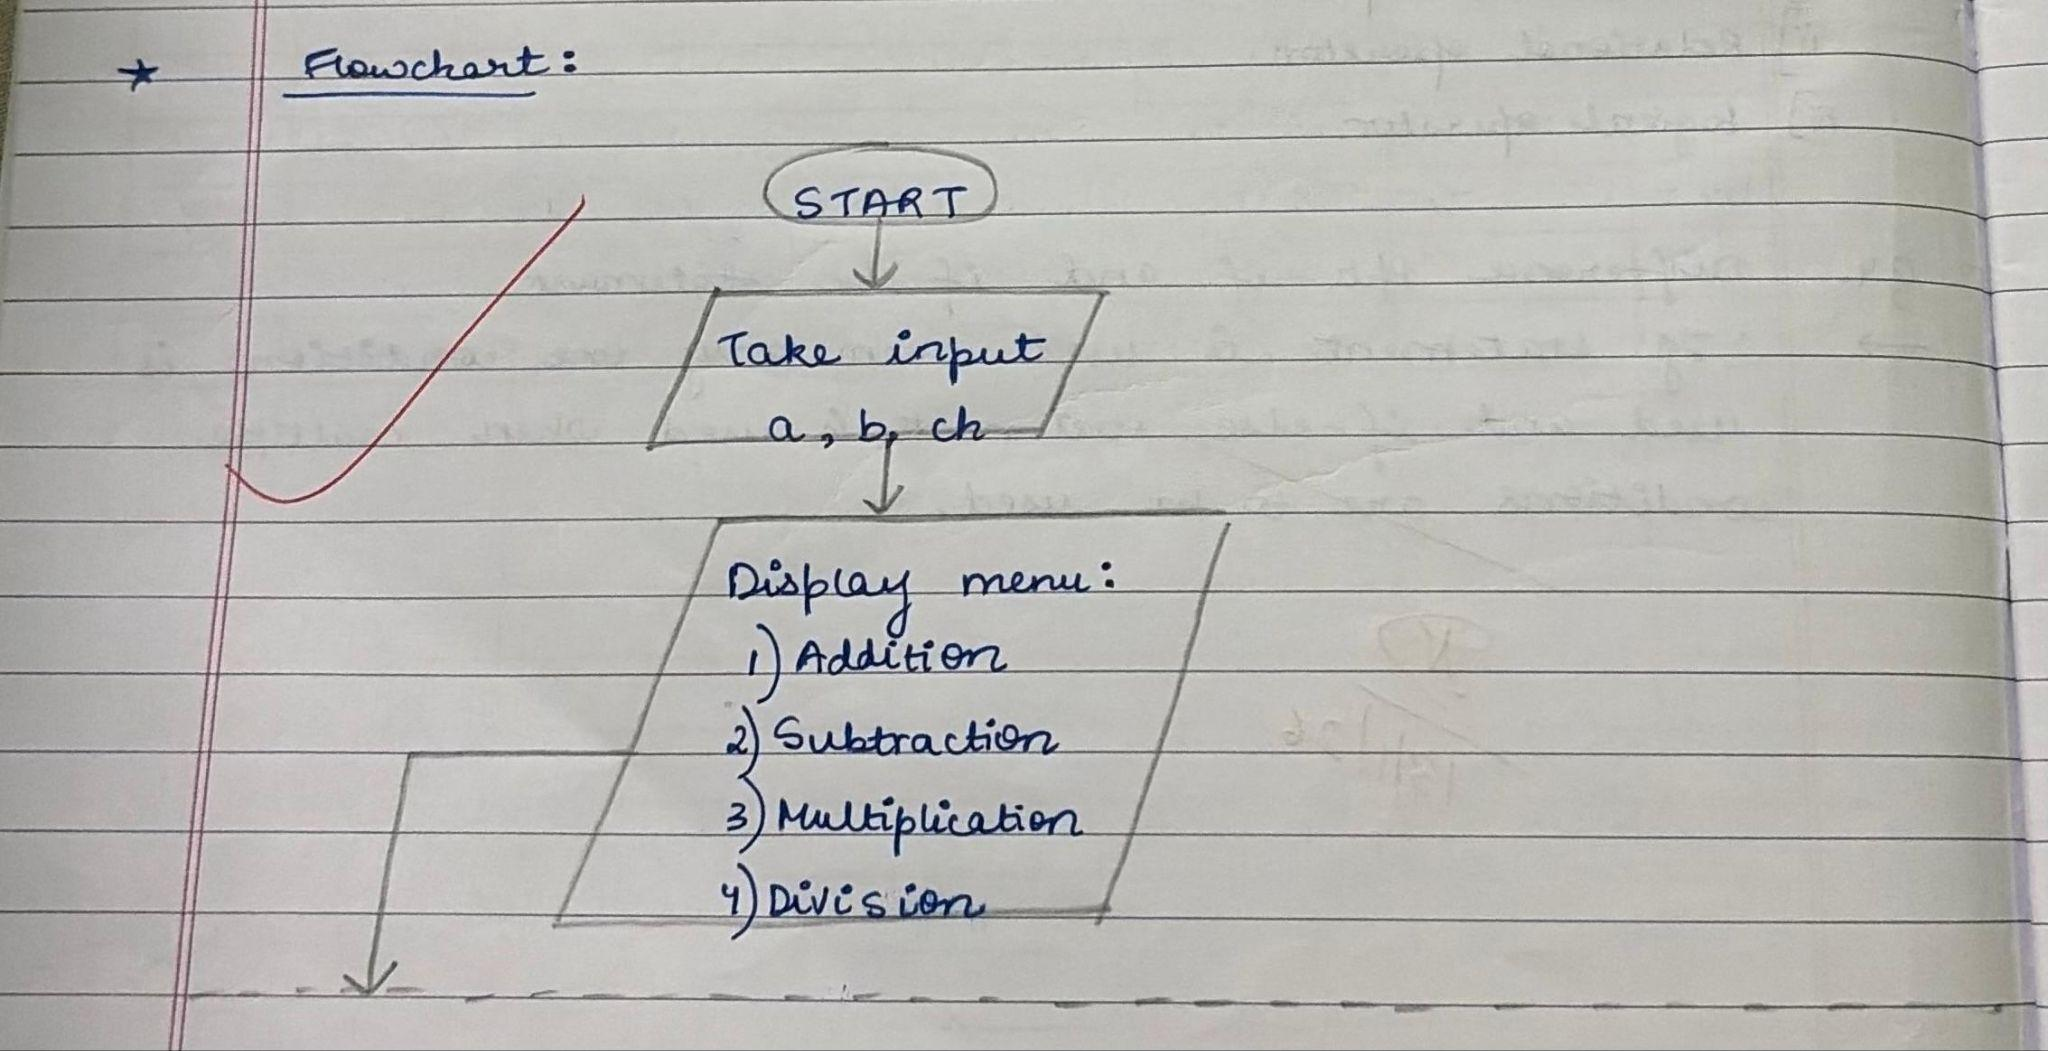 ★ Flowchart:
START
Take input
a, b, ch
Display menu:
1) Addition
2) Subtraction
3) Multiplication
4) Division